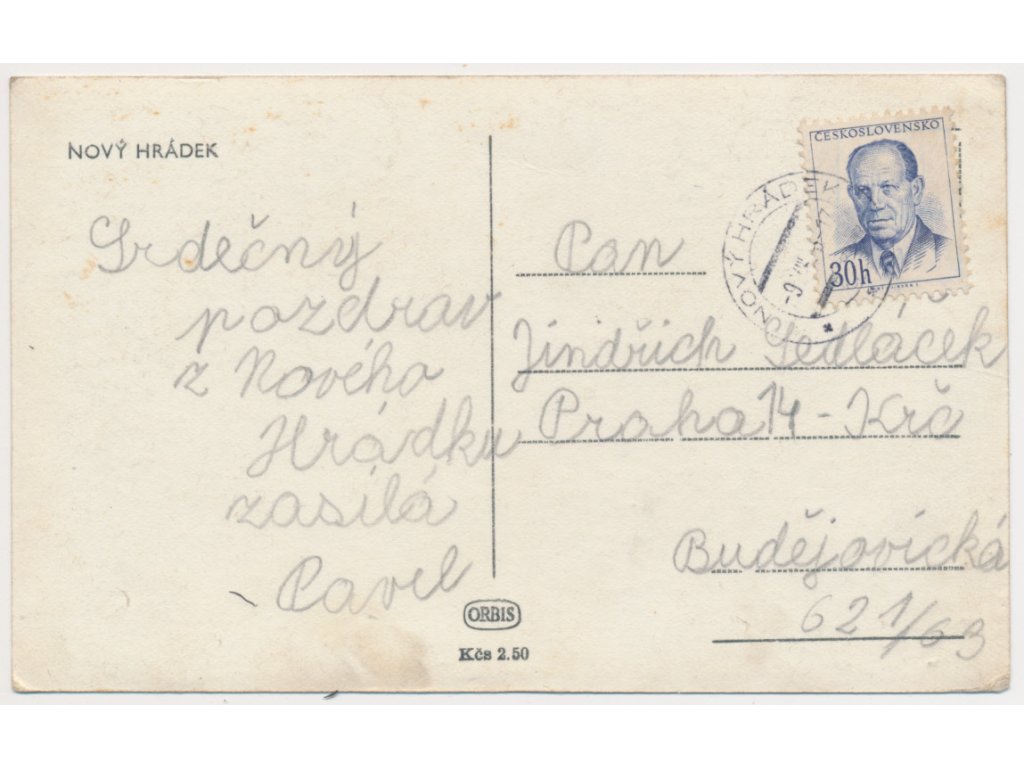 NOVÝ HRÁDEK
Srdečný
pozdrav
z Nového
Hrádku
zasílá
Pavel
ORBIS
Kčs 2.50
ČESKOSLOVENSKO
30h
NOVÝ HRÁDEK
Pan
Jindřich Sedláček
Praha 14 - Krč
Budějovická
621/63